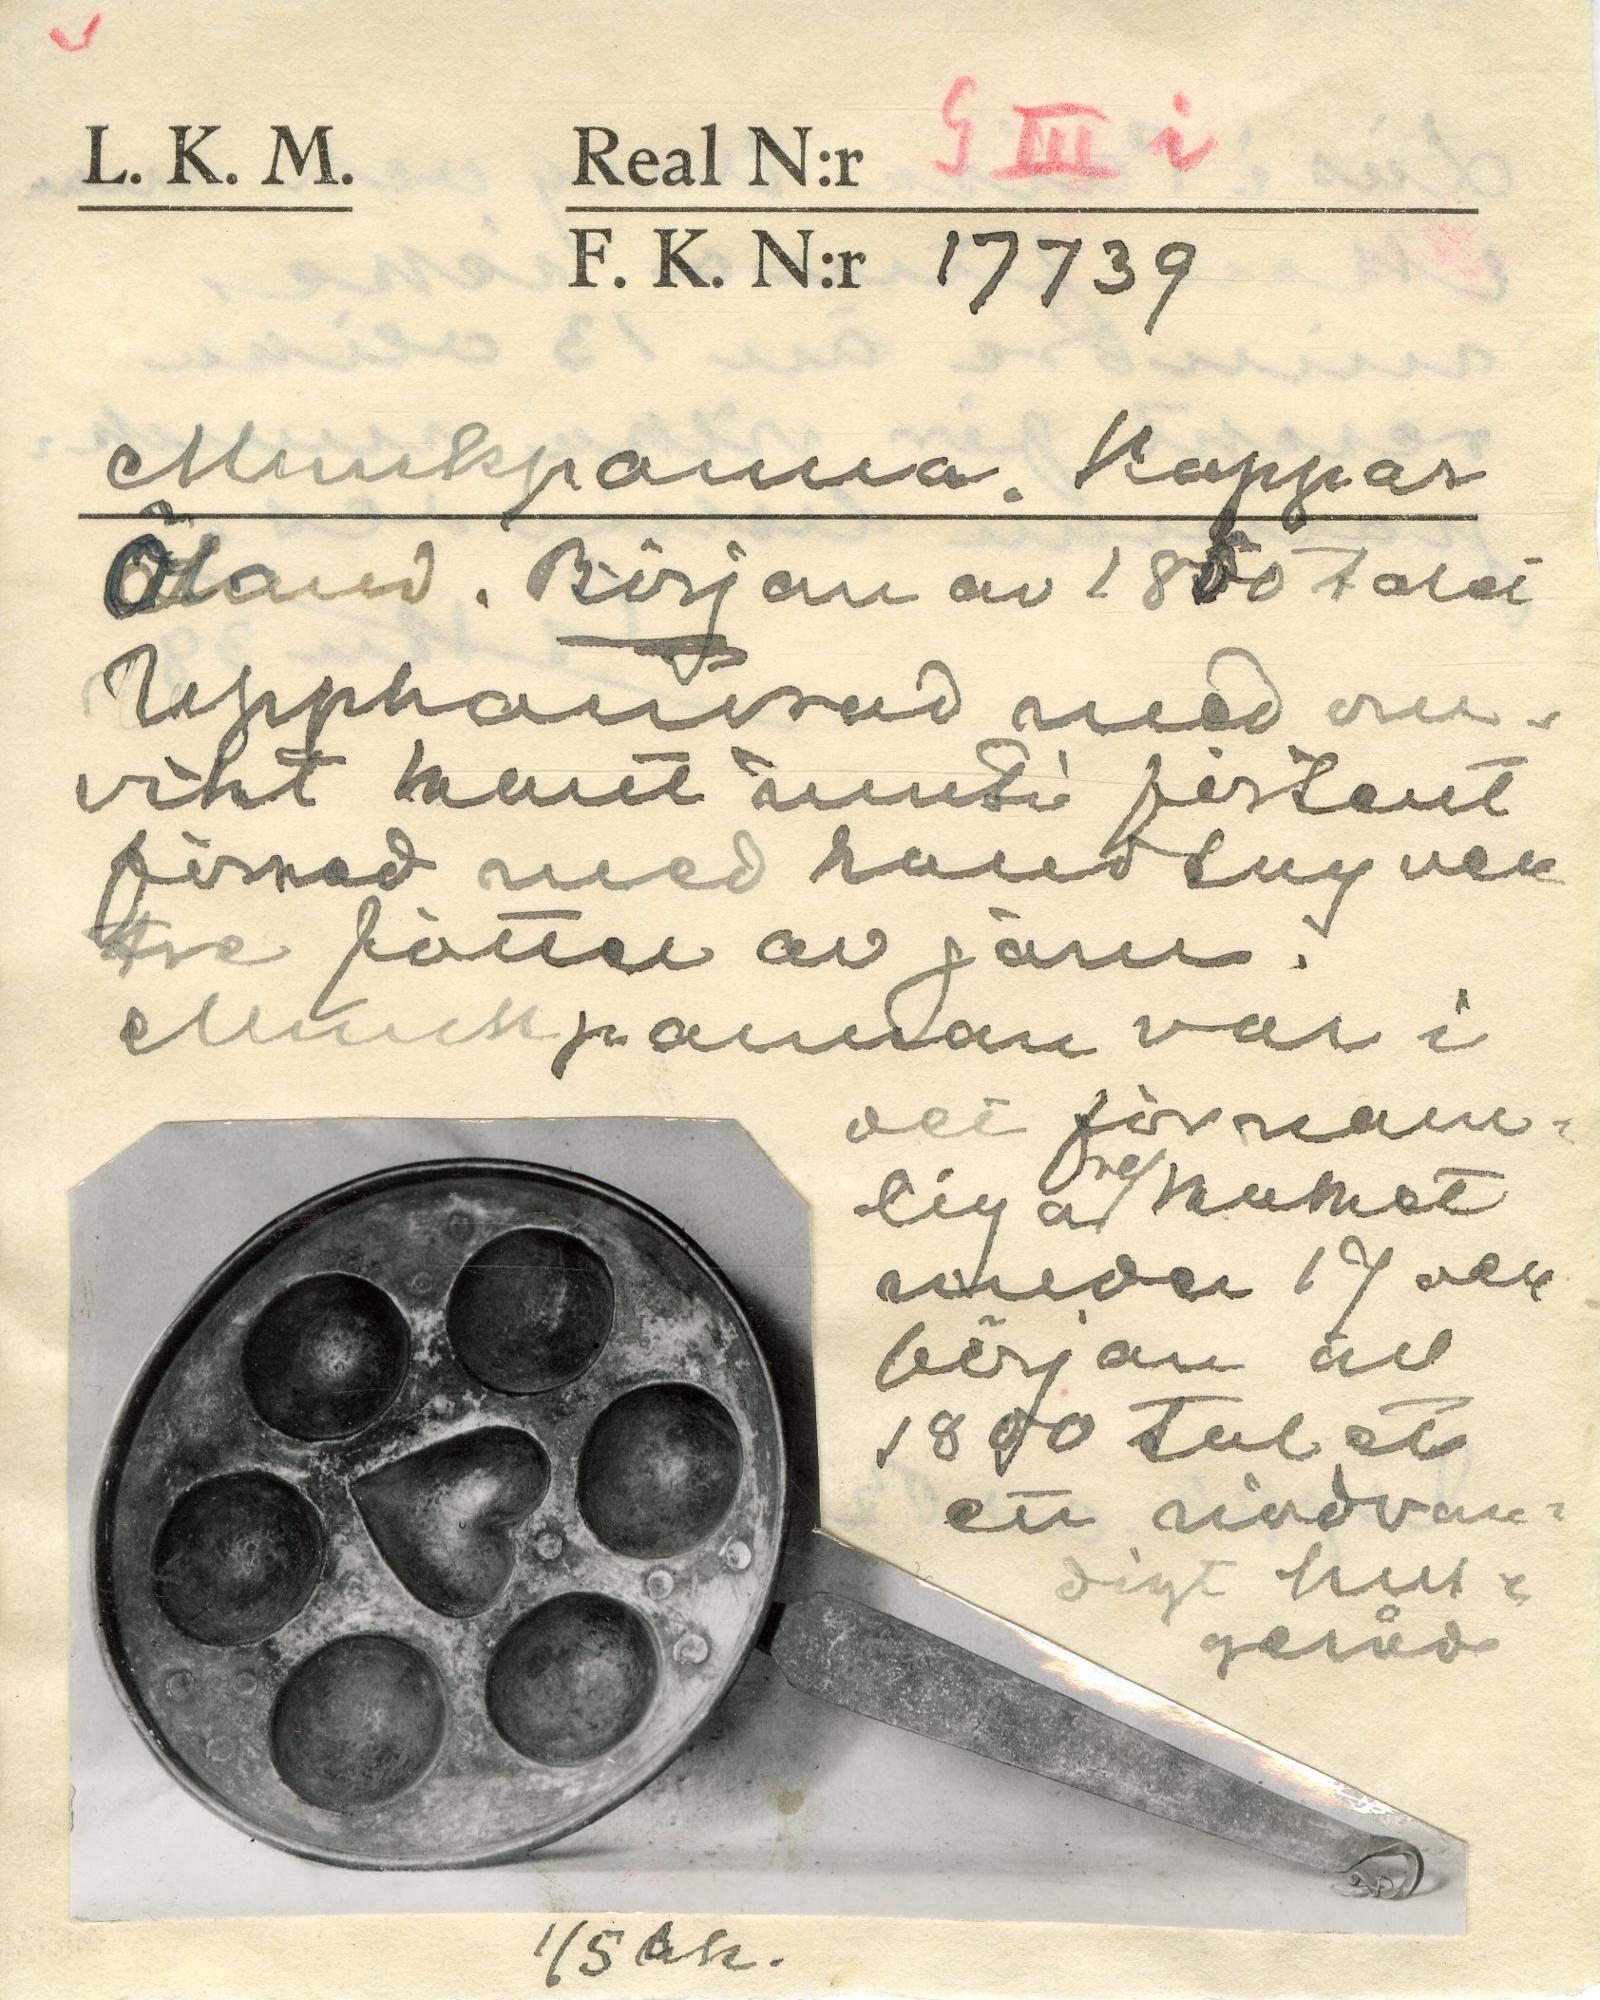 L. K. M. Real N:r G III i
F. K. N:r 17739
Munkpanna. Koppar
Öland. Början av 1800 talet
Upphamrad med om-
vikt kant runt förtent
försedd med handtag och
tre fötter av järn.
Munkpannan var i
det förnäm-
liga re köket
under 17 och
början av
1800 talet
ett nödvän-
digt hus-
geråd
1/5 sk.